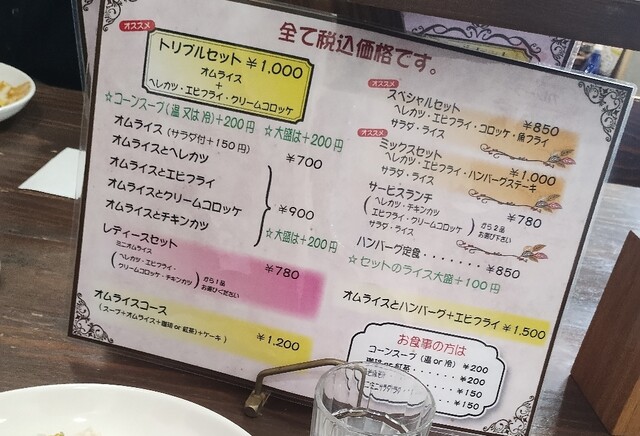 全て税込価格です。
オススメ
トリプルセット ¥1.000
オムライス
+
ヘレカツ・エビフライ・クリームコロッケ
☆コーンスープ(温 又は 冷)+200円 ☆大盛は+200円
オムライス (サラダ付+150円) ¥700
オムライスとヘレカツ
オムライスとエビフライ
オムライスとクリームコロッケ
オムライスとチキンカツ
¥900
☆大盛は+200円
レディースセット ¥780
ミニオムライス
ヘレカツ・エビフライ・
クリームコロッケ・チキンカツ
から1品
お選びください
オムライスコース
(スープ+オムライス+珈琲or紅茶)+ケーキ) ¥1.200
オススメ
スペシャルセット ¥850
ヘレカツ・エビフライ・コロッケ・魚フライ
サラダ・ライス
オススメ
ミックスセット ¥1.000
ヘレカツ・エビフライ・ハンバーグステーキ
サラダ・ライス
サービスランチ ¥780
ヘレカツ・チキンカツ
エビフライ・クリームコロッケ
サラダ・ライス
から2品
お選び下さい
ハンバーグ定食・・・・・・・¥850
☆セットのライス大盛+100円
オムライスとハンバーグ+エビフライ ¥1.500
お食事の方は
コーンスープ(温or冷) ¥200
珈琲or紅茶・・・・・・¥200
¥150
ミニサラダ ¥150